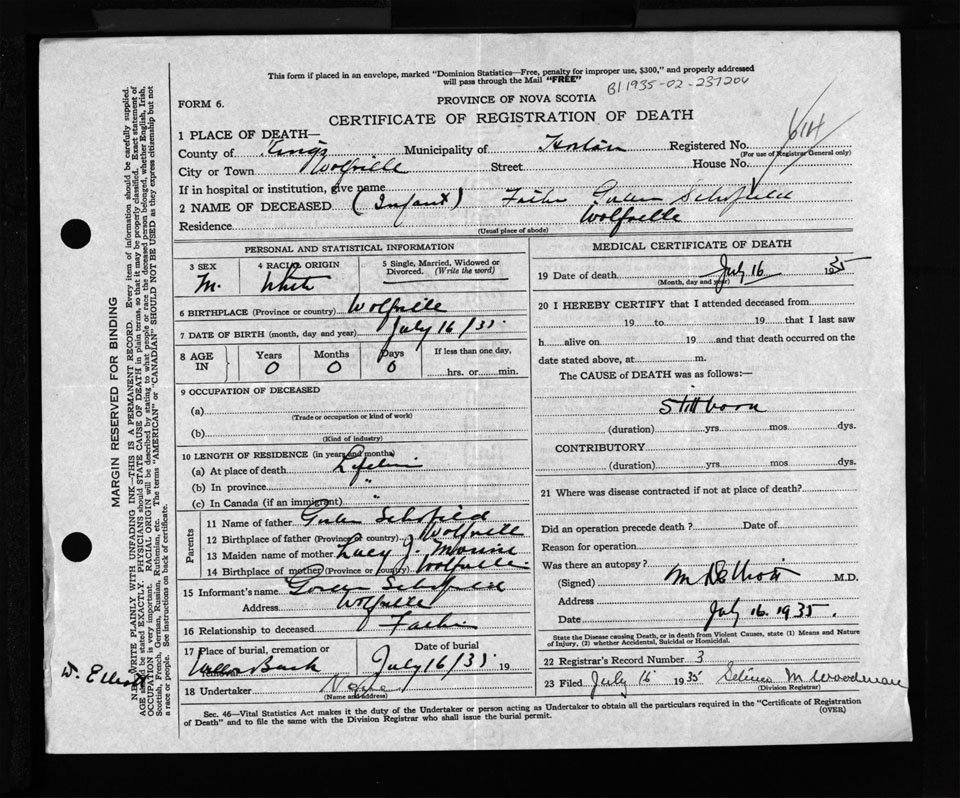 This form if placed in an envelope, marked "Dominion Statistics—Free, penalty for improper use, $300," and properly addressed
will pass through the Mail "FREE"
B1 1935-02-237204
FORM 6.
PROVINCE OF NOVA SCOTIA
CERTIFICATE OF REGISTRATION OF DEATH
1 PLACE OF DEATH—
County of Kings Municipality of Horton Registered No. 614
(For use of Registrar General only)
City or Town Wolfville Street House No.
If in hospital or institution, give name
2 NAME OF DECEASED (Infant) Father Schofield
Residence Wolfville
(Usual place of abode)
PERSONAL AND STATISTICAL INFORMATION
3 SEX M.
4 RACIAL ORIGIN White
5 Single, Married, Widowed or
Divorced. (Write the word)
6 BIRTHPLACE (Province or country) Wolfville
7 DATE OF BIRTH (month, day and year) July 16/35
8 AGE IN
Years Months Days If less than one day,
0 0 0 hrs. or min.
9 OCCUPATION OF DECEASED
(a)
(Trade or occupation or kind of work)
(b)
(Kind of industry)
10 LENGTH OF RESIDENCE (in years and months)
(a) At place of death
(b) In province "
(c) In Canada (if an immigrant) "
Parents
11 Name of father Schofield
12 Birthplace of father (Province or country) Wolfville
13 Maiden name of mother Lucy J.
14 Birthplace of mother (Province or country) Wolfville
15 Informant's name Schofield
Address Wolfville
16 Relationship to deceased Father
17 Place of burial, cremation or
removal Date of burial
July 16/35 19
18 Undertaker None
(Name and address)
MEDICAL CERTIFICATE OF DEATH
19 Date of death July 16 1935
(Month, day and year)
20 I HEREBY CERTIFY that I attended deceased from
19 to 19 that I last saw
h alive on 19 and that death occurred on the
date stated above, at m.
The CAUSE of DEATH was as follows:—
Stillborn
(duration) yrs mos dys.
CONTRIBUTORY
(duration) yrs mos dys.
21 Where was disease contracted if not at place of death?
Did an operation precede death? Date of
Reason for operation
Was there an autopsy?
(Signed) M.D.
Address
Date July 16. 1935.
State the Disease causing Death, or in death from Violent Causes, state (1) Means and Nature
of Injury, (2) whether Accidental, Suicidal or Homicidal.
22 Registrar's Record Number 3
23 Filed July 16 1935 M Woodman
(Division Registrar)
Sec. 46—Vital Statistics Act makes it the duty of the Undertaker or person acting as Undertaker to obtain all the particulars required in the "Certificate of Registration
of Death" and to file the same with the Division Registrar who shall issue the burial permit. (OVER)
MARGIN RESERVED FOR BINDING
N.B.—WRITE PLAINLY WITH UNFADING INK—THIS IS A PERMANENT RECORD. Every item of information should be carefully supplied.
AGE should be stated EXACTLY. PHYSICIANS should STATE CAUSE OF DEATH in plain terms, so that it may be properly classified. Exact statement of
OCCUPATION is very important. RACIAL ORIGIN will be described by stating to what people or race the deceased person belonged, whether English, Irish,
Scottish, French, German, Russian, Ruthenian, etc. The terms "AMERICAN" or "CANADIAN" SHOULD NOT BE USED as they express citizenship but not
a race or people. See instructions on back of certificate.